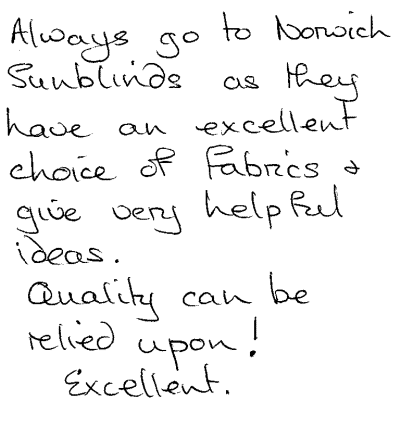 Always go to Norwich
Sunblinds as they
have an excellent
choice of fabrics &
give very helpful
ideas.
Quality can be
relied upon!
Excellent.